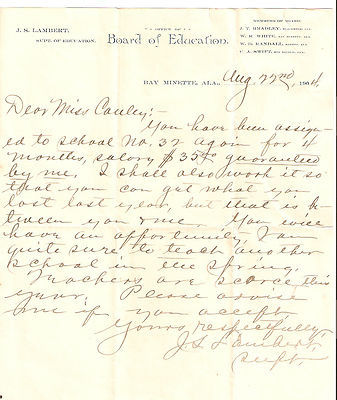 J. S. LAMBERT,
SUPT. OF EDUCATION.
OFFICE OF
Board of Education.
MEMBERS OF BOARD:
J. T. BRADLEY,
W. R. WHITE,
W. D. RANDALL,
BAY MINETTE, ALA., Aug 22nd, 1904.
Dear Miss Cauley:-
You have been assign-
ed to school No. 32 again for 4
months, salary $35 guaranteed
by me. I shall also work it so
that you can get what you
lost last year, but that is be-
tween you & me. You will
have an opportunity, I am
quite sure to teach another
school in the spring.
Teachers are scarce this
year. Please advise
me if you accept.
Yours, respectfully,
J. S. Lambert,
Supt.